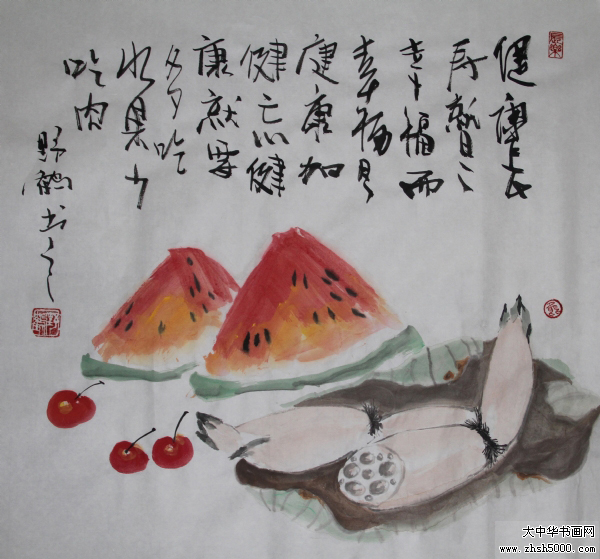 健康长
寿
幸福而
幸福是
健康加
健忘健
康就要
多吃
水果少
吃肉
野鹤书之
大中华书画网
www.zhsh5000.com